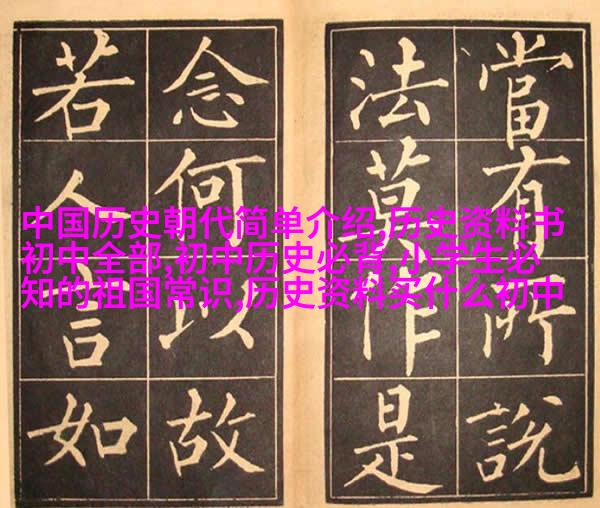 中国历史朝代简单介绍,历史资料书
初中全部,初中历史必背,小学生必
知的祖国常识,历史资料买什么初中
當有所說
法莫作是
念何以故
若人言如